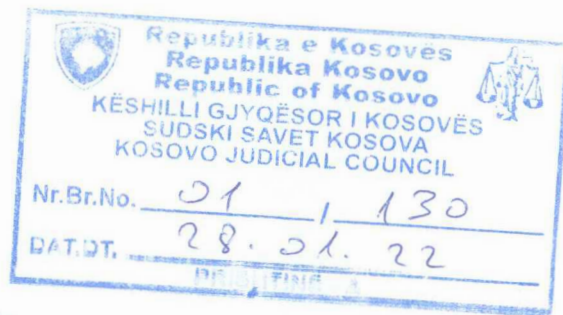 Republika e Kosovës
Republika Kosovo
Republic of Kosovo
KËSHILLI GJYQËSOR I KOSOVËS
SUDSKI SAVET KOSOVA
KOSOVO JUDICIAL COUNCIL
Nr.Br.No. 01 / 130
DAT.DT. 28.01.22